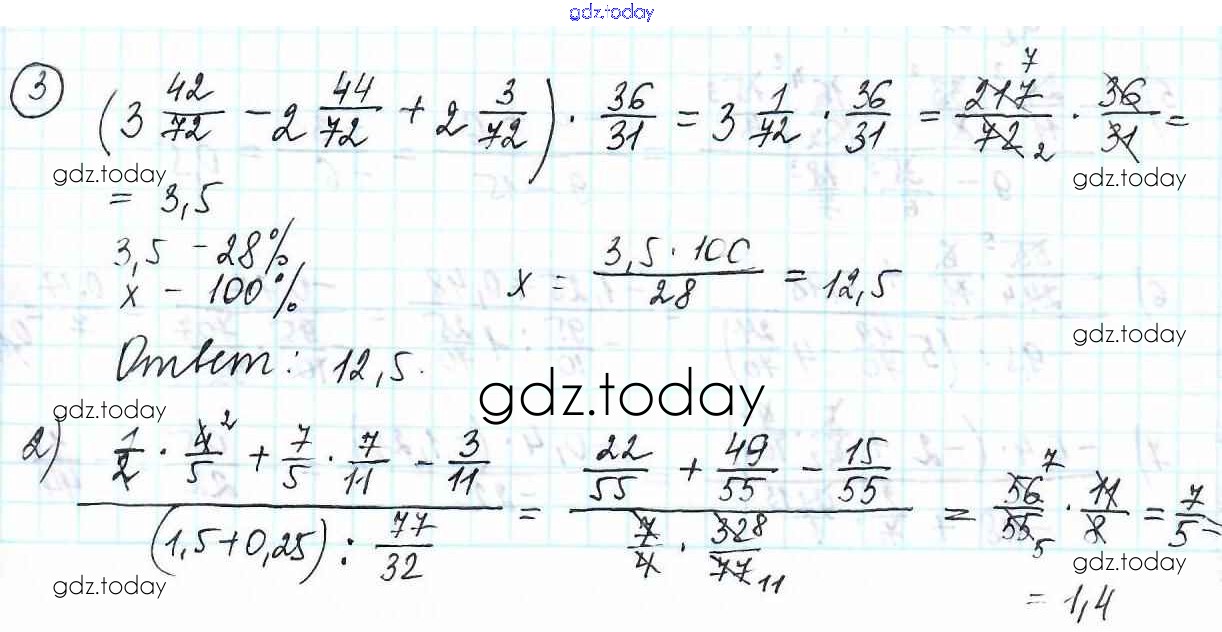 gdz.today
③ (3 42/72 − 2 44/72 + 2 3/72) · 36/31 = 3 1/72 · 36/31 = 217/72 · 36/31 =
7 2
gdz.today gdz.today
= 3,5
3,5 − 28%
x − 100% x = 3,5 · 100 / 28 = 12,5
gdz.today
Ответ: 12,5.
gdz.today
gdz.today
2) (1/2 · 4/5 + 7/5 · 7/11 − 3/11) / ((1,5+0,25) : 77/32) = (22/55 + 49/55 − 15/55) / (7/4 · 32/77) = 56/55 · 11/8 = 7/5 =
2 8 11 7 5
gdz.today gdz.today
= 1,4